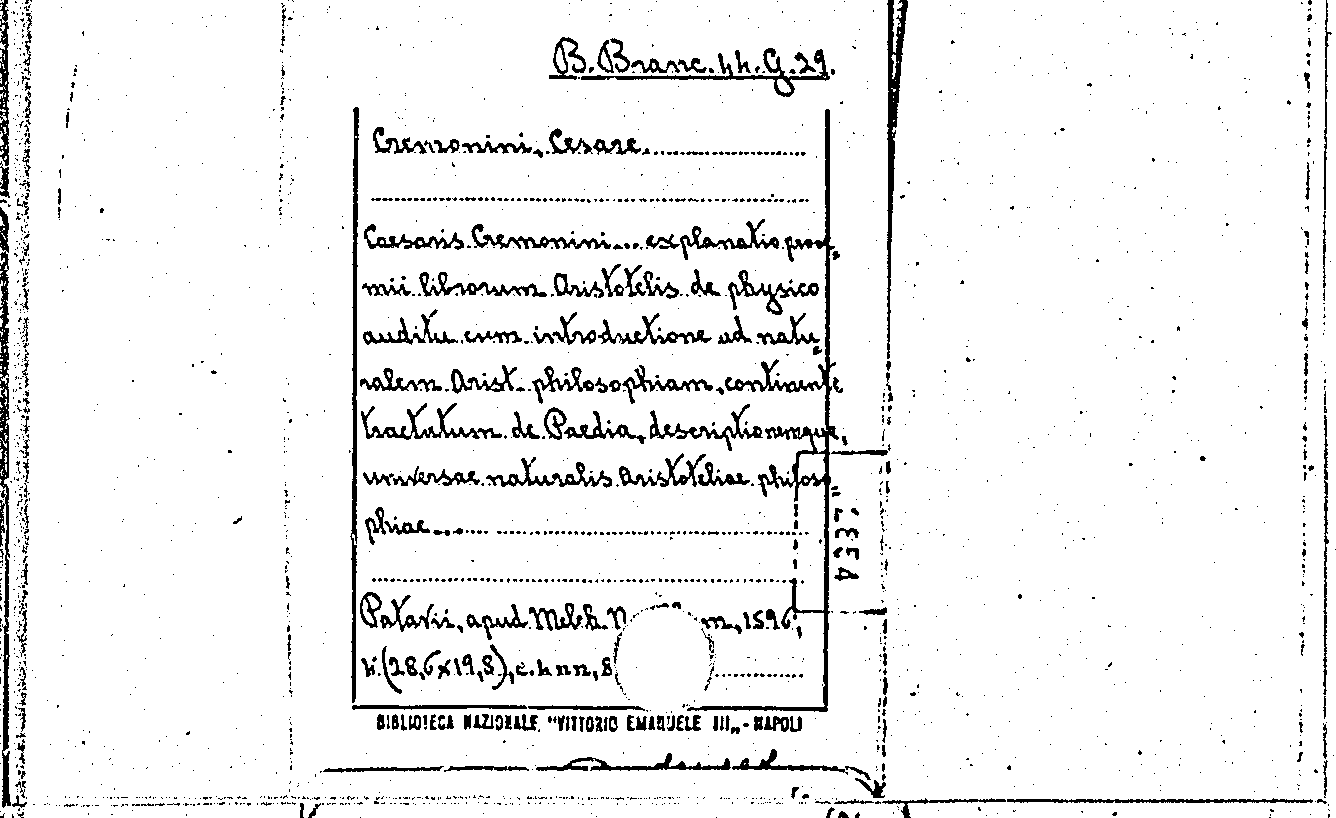 B. Branc. 44. G. 29.
Cremonini, Cesare.
Caesaris Cremonini... explanatio prooe„
mii librorum Aristotelis de physico
auditu cum introductione ad natu„
ralem Arist. philosophiam, continente
tractatum de Paedia, descriptionemque,
universae naturalis Aristoteliae philoso„
phiae....
Patavii, apud Melch. N m, 1596,
4. (28,6x19,8), c. 4 nn, 8
BIBLIOTECA NAZIONALE "VITTORIO EMANUELE III„ - NAPOLI